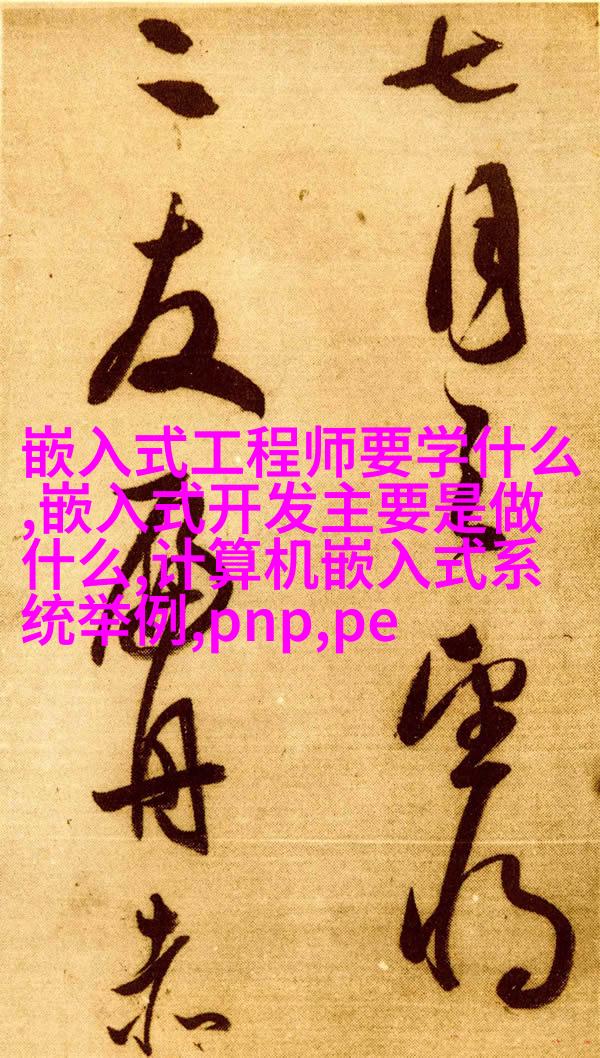 七月之望将
二友扁舟赤
嵌入式工程师要学什么
,嵌入式开发主要是做
什么,计算机嵌入式系
统举例,pnp,pe